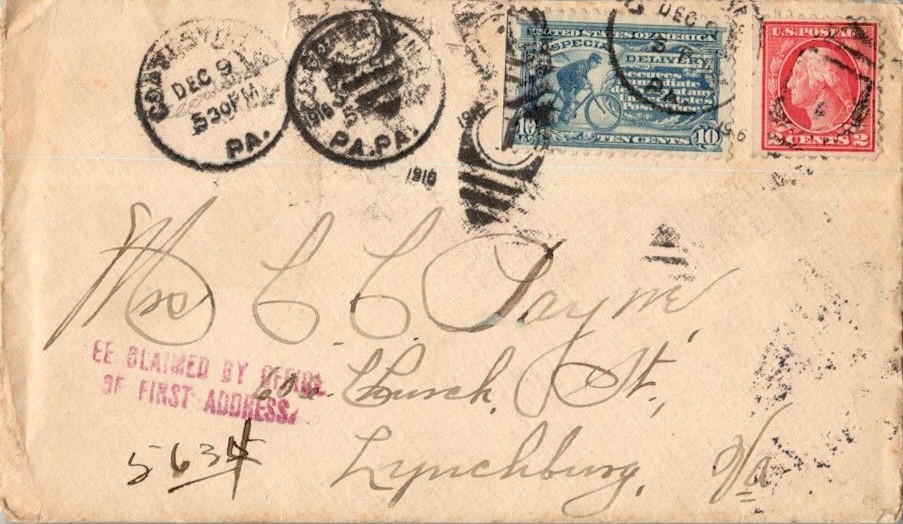 COATESVILLE
DEC 9
530PM
PA.
1916
5
PA.PA.
1916
UNITED STATES OF AMERICA
SPECIAL DELIVERY
secures
immediate
delivery at any
United States
post office
10 TEN CENTS 10
DEC 9
5
PA.
U.S. POSTAGE
2 CENTS 2
Mrs C C Payne,
Church St,
Lynchburg, Va
EE CLAIMED BY OFFICE
OF FIRST ADDRESS.
5634